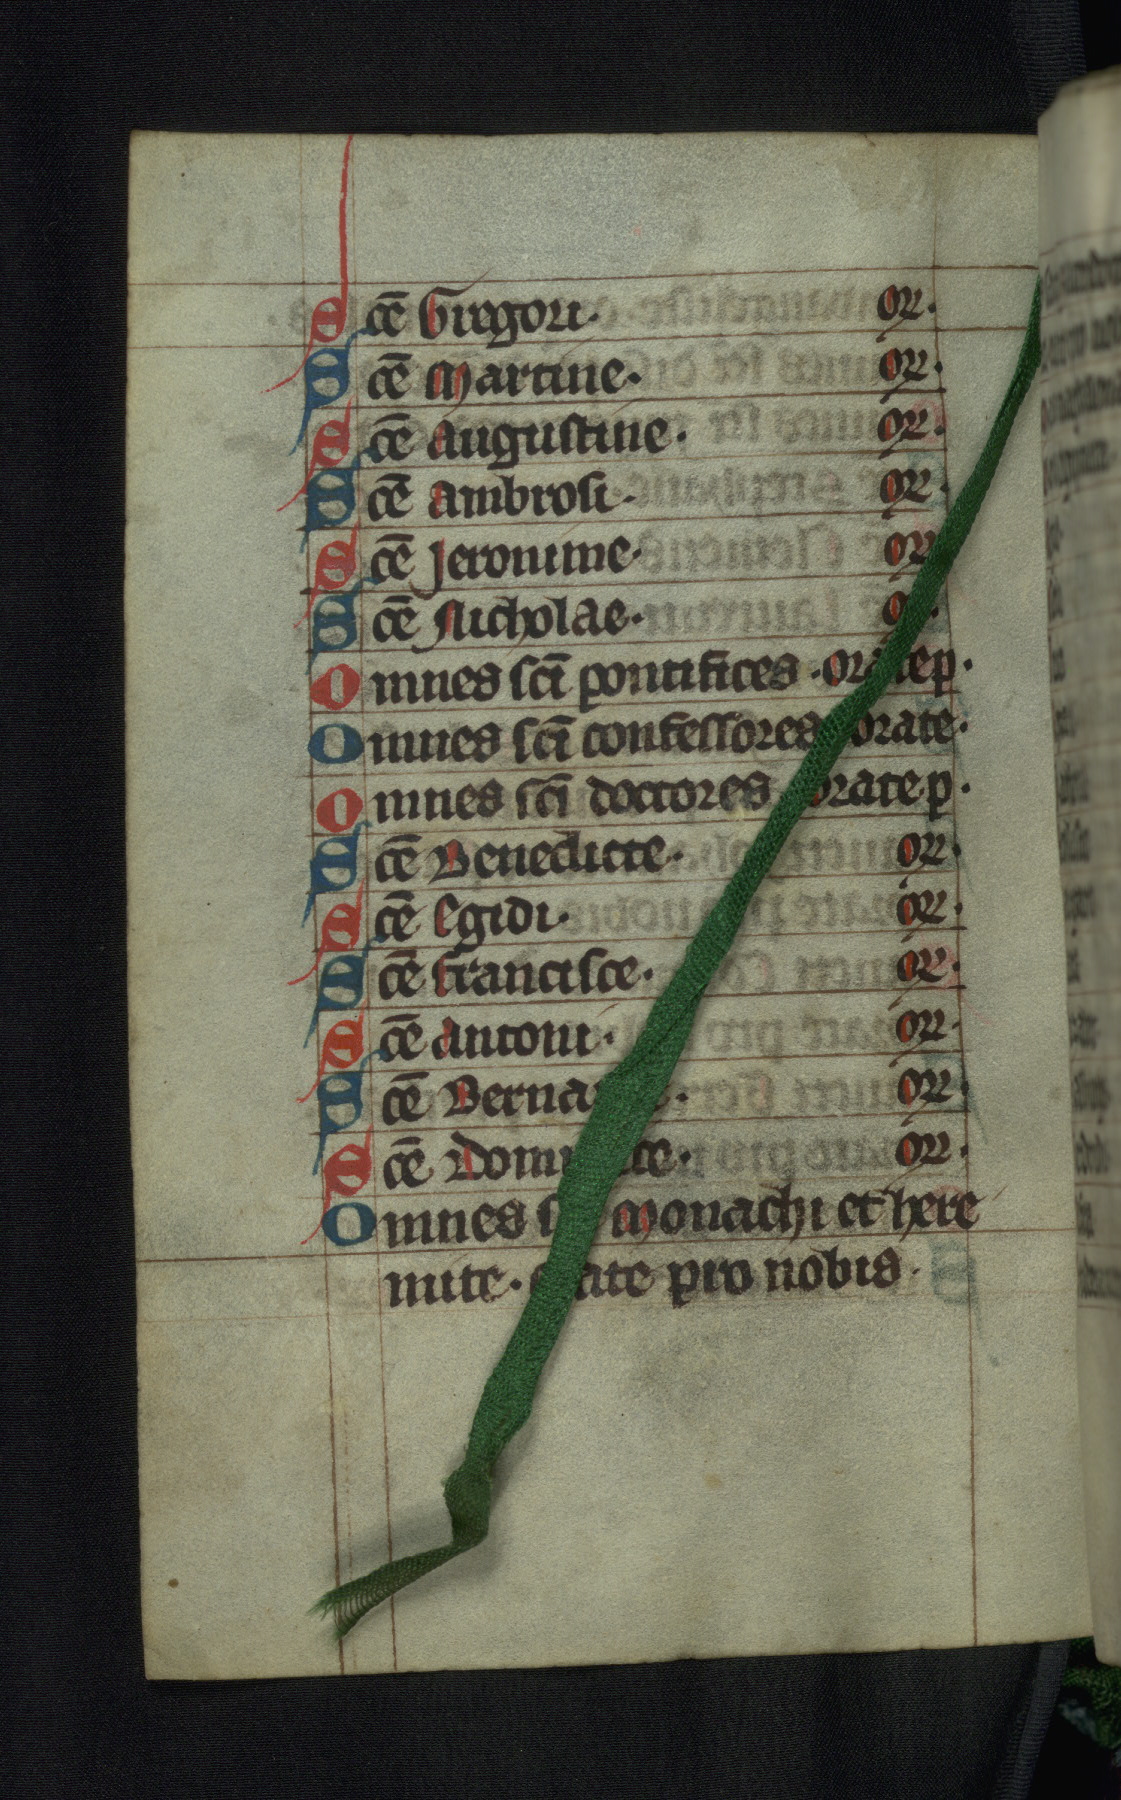 Scē Gregori. or.
Scē Martine. or.
Scē Augustine. or.
Scē Ambrosi. or.
Scē Jeronime. or.
Scē Nicholae. or.
Omnes scī pontifices. orate p.
Omnes scī confessores orate.
Omnes scī doctores orate p.
Scē Benedicte. or.
Scē Egidi. or.
Scē Francisce. or.
Scē Antoni. or.
Scē Berna or.
Scē or.
Omnes monachi et here
mite. pro nobis.